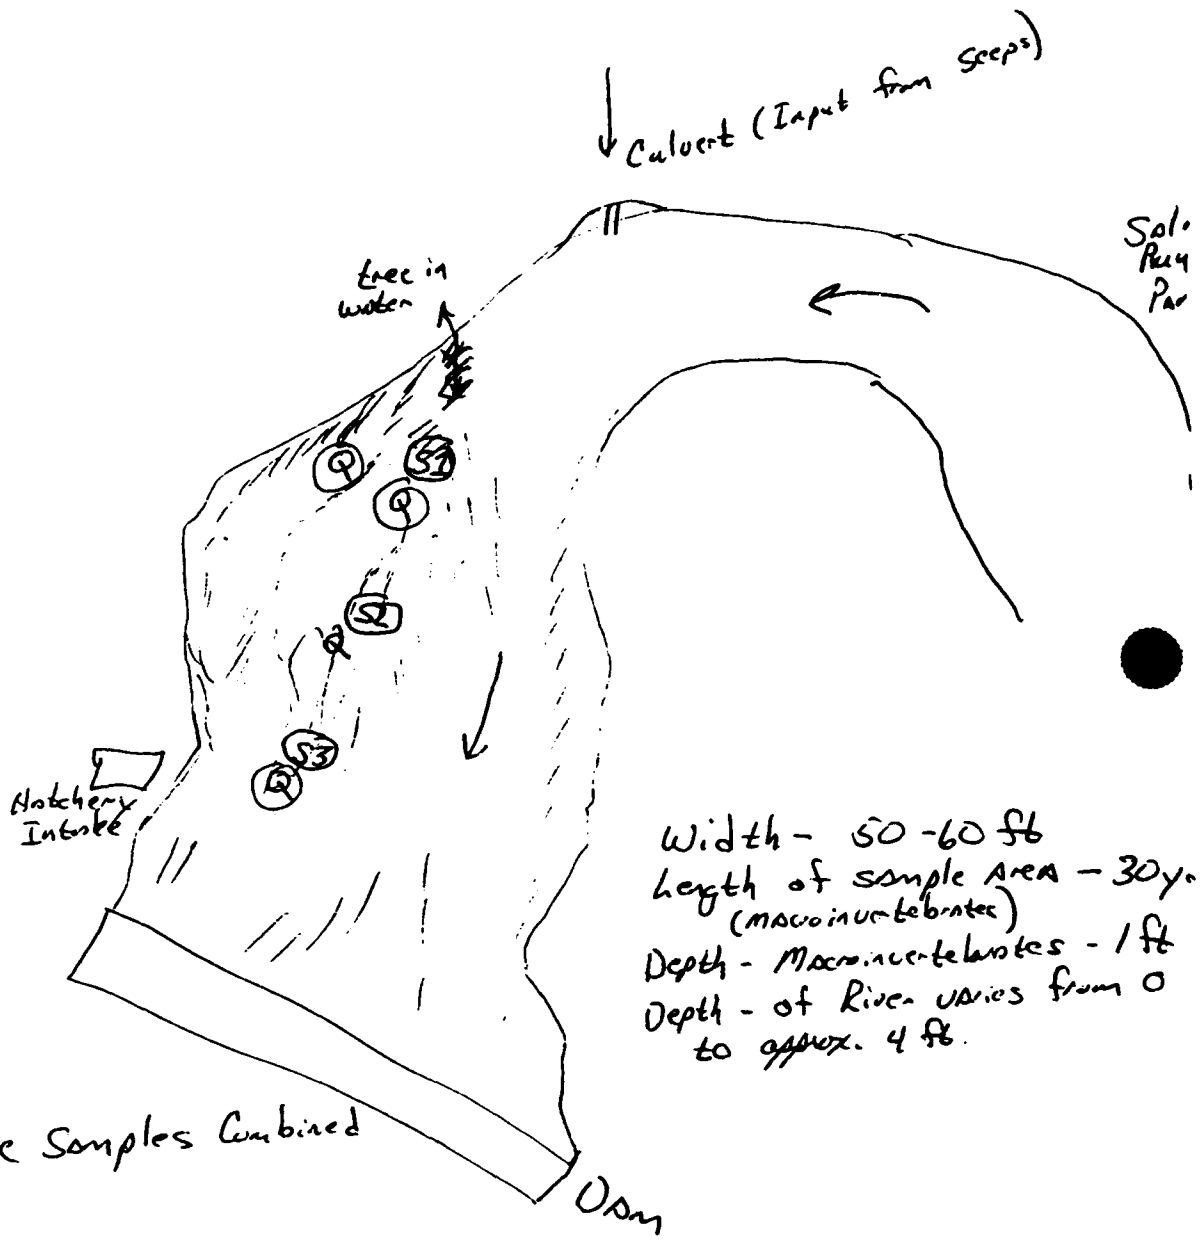 Culvert (Input from Seeps)
tree in
water
Q
S1
Q
S2
Q
S3
Q
Hatchery
Intake
Width - 50-60 ft
Length of sample Area - 30y
(macroinvertebrates)
Depth - Macroinvertebrates - 1 ft
Depth - of River varies from 0
to approx. 4 ft.
Samples Combined
Dam